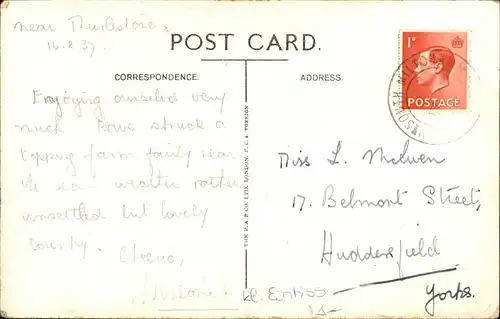 near Thurlestone.
16.8.37.
POST CARD.
CORRESPONDENCE.
ADDRESS.
1D
POSTAGE
SOUTH MILTON
Enjoying ourselves very
much have struck a
topping farm fairly near
the sea – weather rather
unsettled but lovely
country. Cheerio,
THE R.A.P. Co. LTD. LONDON, E.C.4. VERSION
Miss L. McEwen
17. Belmont Street,
Huddersfield
Yorks.